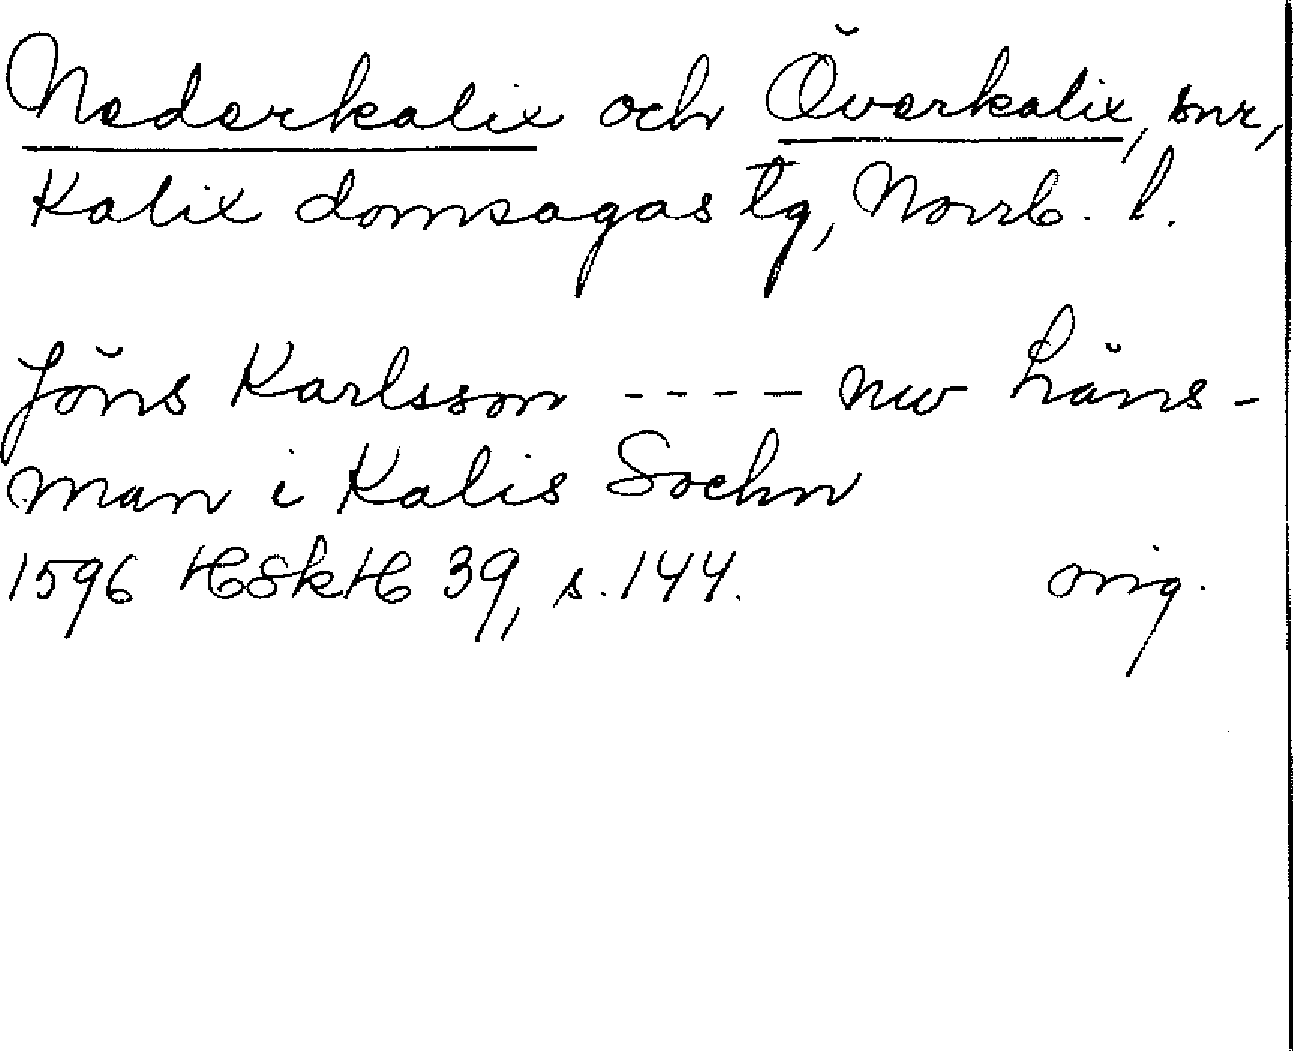 Nederkalix och Överkalix, snr,
Kalix domsagas tg, Norrb. l.
Jöns Karlsson ---- nw Läns-
man i Kalis Sochn
1596 HSkH 39, s. 144. orig.